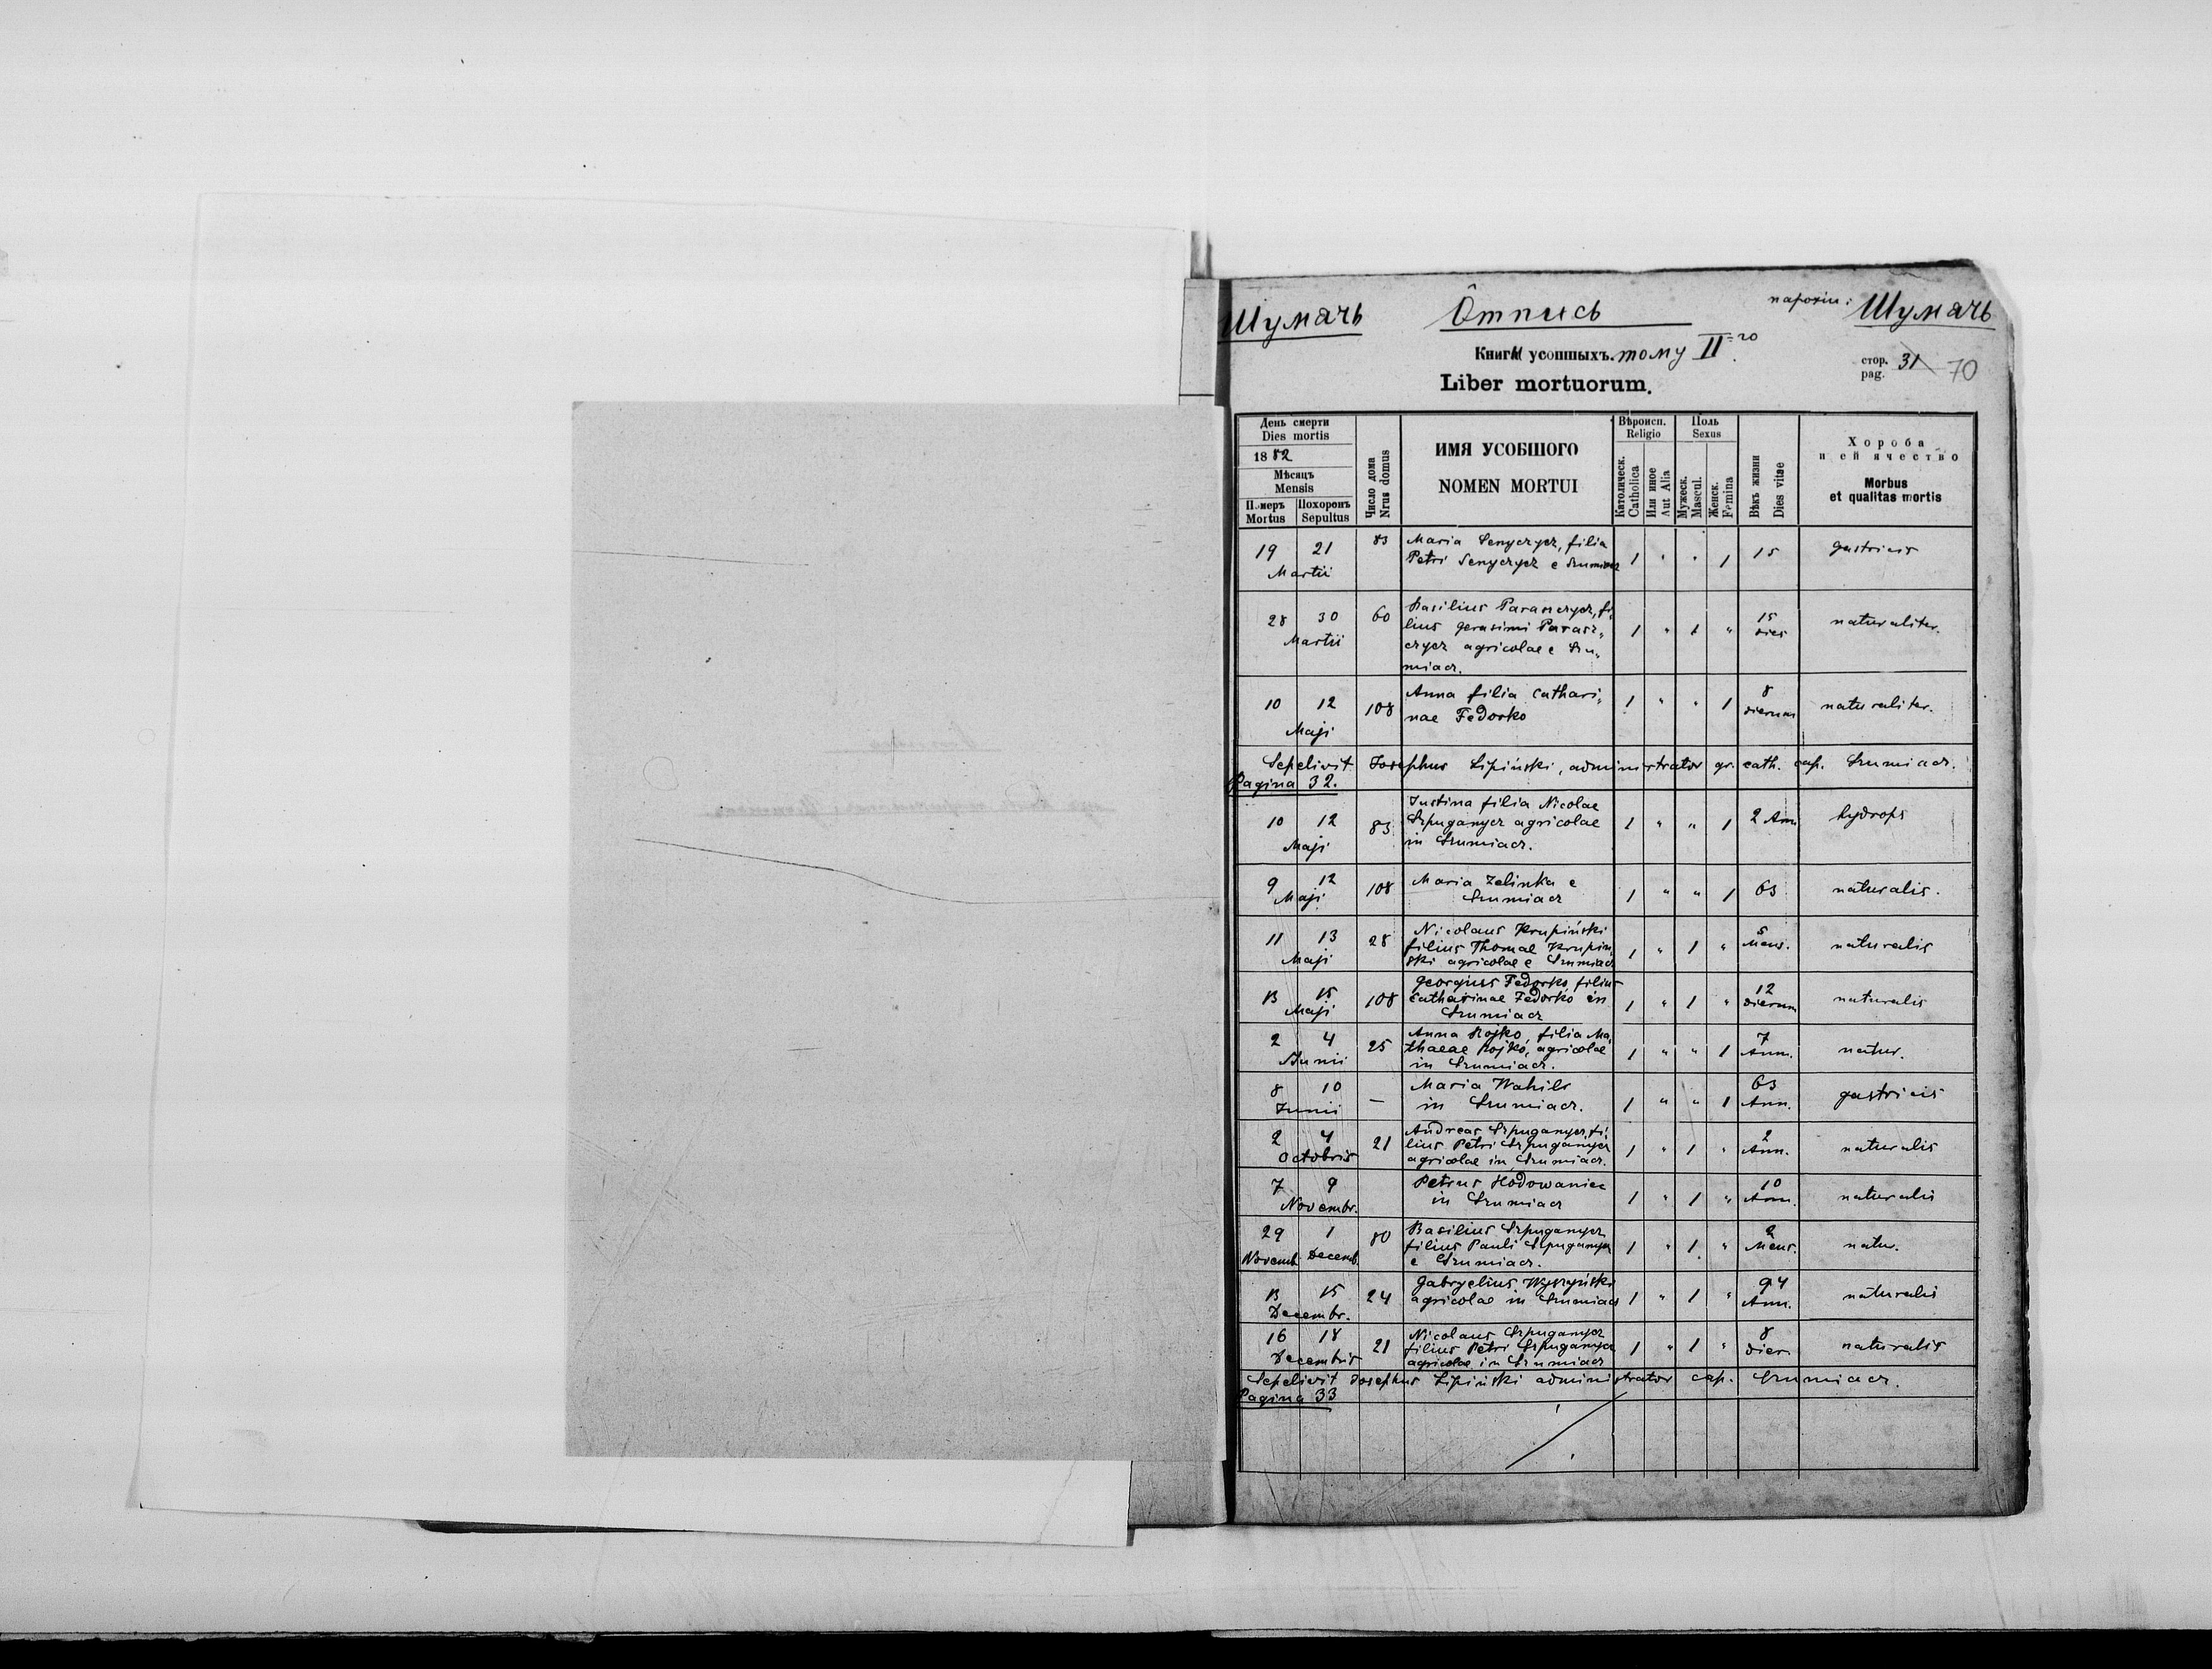 Шумячь Ôтпись парохіи: Шумячь
Книгы усопшыхъ. тому II=го
Liber mortuorum.
стор. pag. 31 70
День смерти
Dies mortis
1882
Мѣсяцъ
Mensis
Померъ Mortus
Похоронъ Sepultus
Число дома
Nrus domus
ИМЯ УСОБШОГО
NOMEN MORTUI
Вѣроисп.
Religio
Католическ.
Catholica
Или иное
Aut Alia
Поль
Sexus
Мужеск.
Mascul.
Женск.
Femina
Вѣкъ жизни
Dies vitae
Хороба
и ей ячество
Morbus
et qualitas mortis
19 21 Martii 83 Maria Senyczycz, filia
Petri Senyczycz e Szumiacz 1 " " 1 15 gastricis
28 30 Martii 60 Basilius Parasczycz, fi„
lius gerasimi Parasz„
czycz agricolae e Szu„
miacz. 1 " 1 " 15 dies naturaliter.
10 12 Maji 108 Anna filia Cathari„
nae Fedorko 1 " " 1 8 dierum naturaliter.
Sepelivit Josephus Lipiński, administrator gr. cath. cap. Szumiacz.
Pagina 32.
10 12 Maji 83 Justina filia Nicolae
Szpuganycz agricolae
in Szumiacz. 1 " " 1 2 Ann. hydrops
9 12 Maji 108 Maria Zelinka e
Szumiacz 1 " " 1 63 naturalis.
11 13 Maji 28 Nicolaus Krupiński
filius Thomae Krupin
ski agricolae e Szumiacz 1 " 1 " 5 Mens. naturalis
13 15 Maji 108 georgius Fedorko filius
Catharinae Fedorko in
Szumiacz 1 " 1 " 12 dierum naturalis
2 4 Junii 25 Anna Rojko, filia Ma„
thaeae Rojko, agricolae
in Szumiacz. 1 " " 1 7 Ann. natur.
8 10 Junii — Maria Wahilo
in Szumiacz. 1 " " 1 63 Ann. gastricis
2 4 Octobris 21 Andreas Szpuganycz, fi„
lius Petri Szpuganycz
agricolae in Szumiacz. 1 " 1 " 2 Ann. naturalis
7 9 Novembr. Petrus Hodowaniec
in Szumiacz 1 " 1 " 10 Ann. naturalis
29 Novemb. 1 Decemb. 80 Basilius Szpuganycz
filius Pauli Szpuganycz
e Szumiacz. 1 " 1 " 2 Mens. natur.
13 15 Decembr. 24 Gabryelius
agricolae in Szumiacz 1 " 1 " 94 Ann. naturalis
16 18 Decembris 21 Nicolaus Szpuganycz
filius Petri Szpuganycz
agricolae in Szumiacz 1 " 1 " 8 dier. naturalis
Sepelivit Josephus Lipiński administrator cap. Szumiacz.
Pagina 33